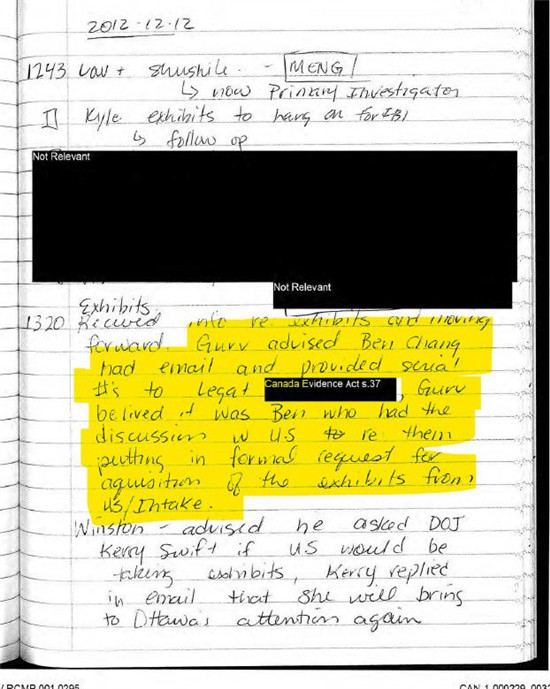 2012-12-12
1243 Vav + Shushile. - MENG
↳ now Primary Investigator
Kyle exhibits to hang on for IBI
↳ follow up
Not Relevant
Not Relevant
Exhibits.
1320 Recieved info re exhibits and moving
forward. Gurv advised Ben Chang
had email and provided serial
#'s to Legat Canada Evidence Act s.37, Gurv
belived it was Ben who had the
discussion w US to re them
putting in formal request for
aquisition of the exhibits from
us/Intake.
Winston - advised he asked DOJ
Kerry Swift if US would be
taking exhibits, Kerry replied
in email that she will bring
to Ottawa's attention again
/ RCMP.001.0295
CAN-1.000229_003